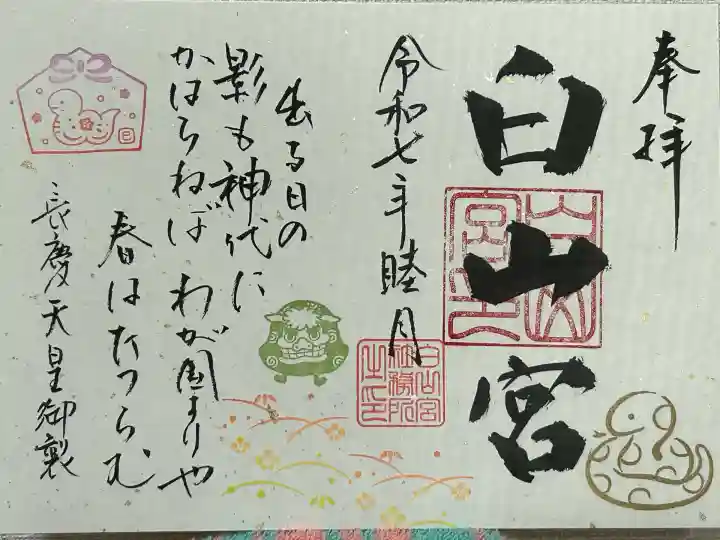 奉拝
白山宮
令和七年睦月
出る日の
影も神代に
かはらねば わが国よりや
春はたつらむ
長慶天皇御製
白山宮
社務所
之印
巳